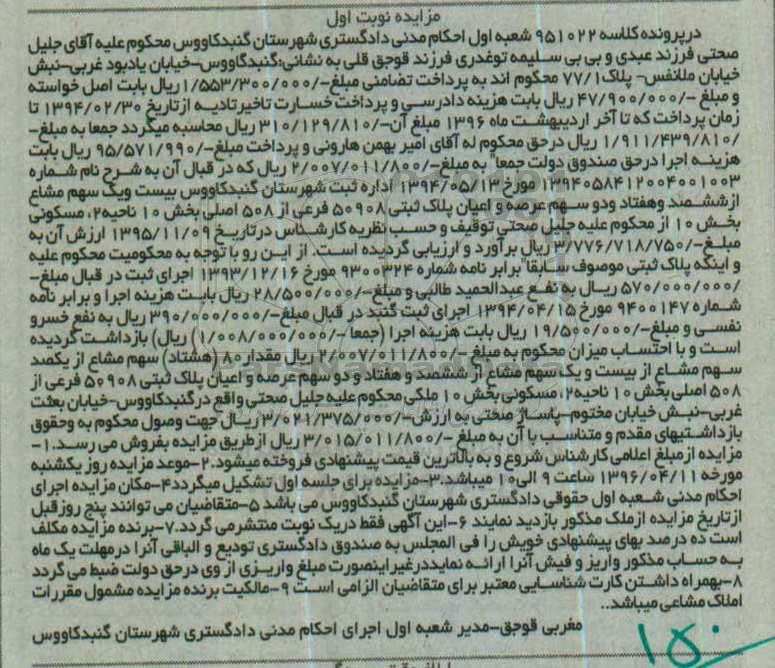 مزایده نوبت اول
درپرونده کلاسه ۹۵۱۰۲۲ شعبه اول احکام مدنی دادگستری شهرستان گنبدکاووس محکوم علیه آقای جلیل
صحتی فرزند عبدی و بی بی سلیمه توغدری فرزند قوجق قلی به نشانی:گنبدگاووس-خیابان یادبود غربی-نبش
خیابان ملانفس- پلاک۷۷/۱ محکوم اند به پرداخت تضامنی مبلغ-/۱/۵۵۳/۳۰۰/۰۰۰ریال بابت اصل خواسته
و مبلغ -/۴۷/۹۰۰/۰۰۰ ریال بابت هزینه دادرسی و پرداخت خسارت تاخیرتادیه ازتاریخ ۱۳۹۴/۰۲/۳۰ تا
زمان پرداخت که تا آخر اردیبهشت ماه ۱۳۹۶ مبلغ آن-/۳۱۰/۱۲۹/۸۱۰ ریال محاسبه میگردد جمعا به مبلغ-
/۱/۹۱۱/۴۳۹/۸۱۰ ریال درحق محکوم له آقای امیر بهمن هارونی و پرداخت مبلغ-/۹۵/۵۷۱/۹۹۰ ریال بابت
هزینه اجرا درحق صندوق دولت جمعا" به مبلغ-/۲/۰۰۷/۰۱۱/۸۰۰ ریال که در قبال آن به شرح نام شماره
۱۳۹۴۰۵۸۴۱۲۰۰۴۰۰۱۰۰۳ مورخ ۱۳۹۴/۰۵/۱۳ اداره ثبت شهرستان گنبدکاووس بیست ویک سهم مشاع
ازششصد وهفتاد ودو سهم عرصه و اعیان پلاک ثبتی ۵۰۹۰۸ فرعی از ۵۰۸ اصلی بخش ۱۰ ناحیه۲، مسکونی
بخش ۱۰ از محکوم علیه جلیل صحتی توقیف و حسب نظریه کارشناس درتاریخ ۱۳۹۵/۱۱/۰۹ ارزش آن به
مبلغ-/۳/۷۷۶/۷۱۸/۷۵۰ ریال برآورد و ارزیابی گردیده است. از این رو با توجه به محکومیت محکوم علیه
و اینکه پلاک ثبتی موصوف سابقا" برابر نامه شماره ۹۳۰۰۳۲۴ مورخ ۱۳۹۳/۱۲/۱۶ اجرای ثبت در قبال مبلغ-
/۵۷۰/۰۰۰/۰۰۰ ریال به نفع عبدالحمید طالبی و مبلغ-/۲۸/۵۰۰/۰۰۰ ریال بابت هزینه اجرا و برابر نامه
شماره ۹۴۰۰۱۴۷ مورخ ۱۳۹۴/۰۴/۱۵ اجرای ثبت گنبد در قبال مبلغ-/۳۹۰/۰۰۰/۰۰۰ ریال به نفع خسرو
نفسی و مبلغ-/۱۹/۵۰۰/۰۰۰ ریال بابت هزینه اجرا (جمعا -/۱/۰۰۸/۰۰۰/۰۰۰) ریال) بازداشت گردیده
است و با احتساب میزان محکوم به مبلغ -/۲/۰۰۷/۰۱۱/۸۰۰ ریال مقدار۸۰ (هشتاد) سهم مشاع از یکصد
سهم مشاع از بیست و یک سهم مشاع از ششصد و هفتاد و دو سهم عرصه و اعیان پلاک ثبتی ۵۰۹۰۸ فرعی از
۵۰۸ اصلی بخش ۱۰ ناحیه۲، مسکونی بخش ۱۰ ملکی محکوم علیه جلیل صحتی واقع درگنبدکاووس-خیابان بعثت
غربی-نبش خیابان مختوم-پاساژ صحتی به ارزش-/۳/۰۲۱/۳۷۵/۰۰۰ ریال جهت وصول محکوم به وحقوق
بازداشتیهای مقدم و متناسب با آن به مبلغ -/۳/۰۱۵/۰۱۱/۸۰۰ ریال ازطریق مزایده بفروش می رسد.۱-
مزایده ازمبلغ اعلامی کارشناس شروع و به بالاترین قیمت پیشنهادی فروخته میشود.۲-موعد مزایده روز یکشنبه
مورخه ۱۳۹۶/۰۴/۱۱ ساعت ۹ الی۱۰ میباشد.۳-مزایده برای جلسه اول تشکیل میگردد۴-مکان مزایده اجرای
احکام مدنی شعبه اول حقوقی دادگستری شهرستان گنبدکاووس می باشد ۵-متقاضیان می توانند پنج روزقبل
ازتاریخ مزایده ازملک مذکور بازدید نمایند ۶-این آگهی فقط دریک نوبت منتشرمی گردد.۷-برنده مزایده مکلف
است ده درصد بهای پیشنهادی خویش را فی المجلس به صندوق دادگستری تودیع و الباقی آنرا درمهلت یک ماه
به حساب مذکور واریز و فیش آنرا ارائه نمایددرغیراینصورت مبلغ واریزی از وی درحق دولت ضبط می گردد
۸-بهمراه داشتن کارت شناسایی معتبر برای متقاضیان الزامی است ۹-مالکیت برنده مزایده مشمول مقررات
املاک مشاعی میباشد..
مغربی قوجق-مدیر شعبه اول اجرای احکام مدنی دادگستری شهرستان گنبدکاووس
۱۵۰